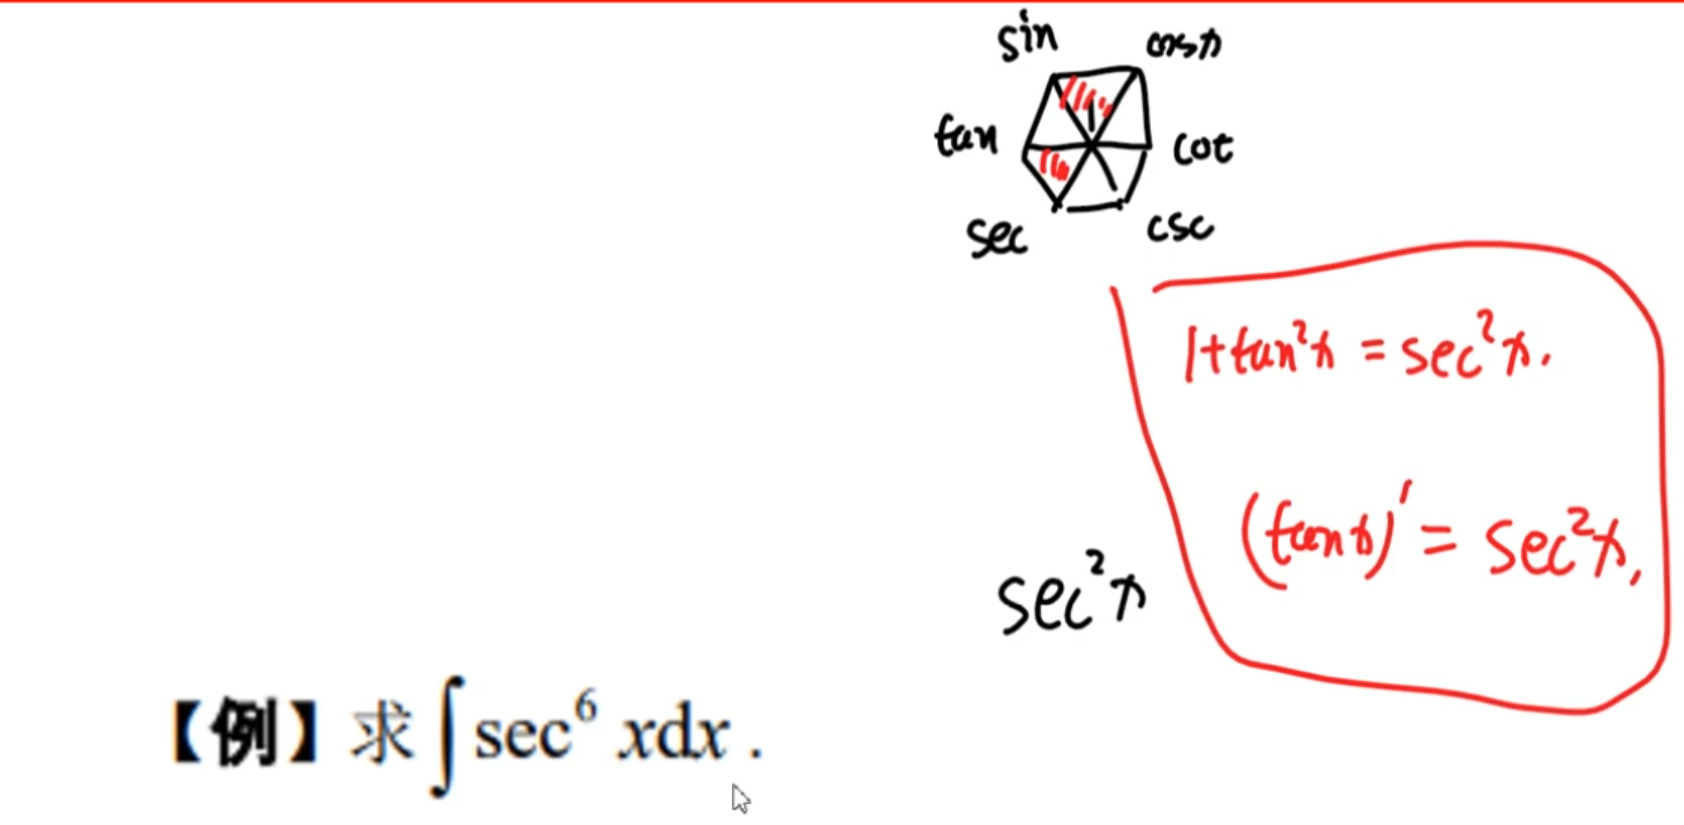 sin cosx
tan 1 cot
sec csc
1+tan²x = sec²x.
(tanx)' = sec²x,
sec²x
【例】求∫sec⁶ xdx .